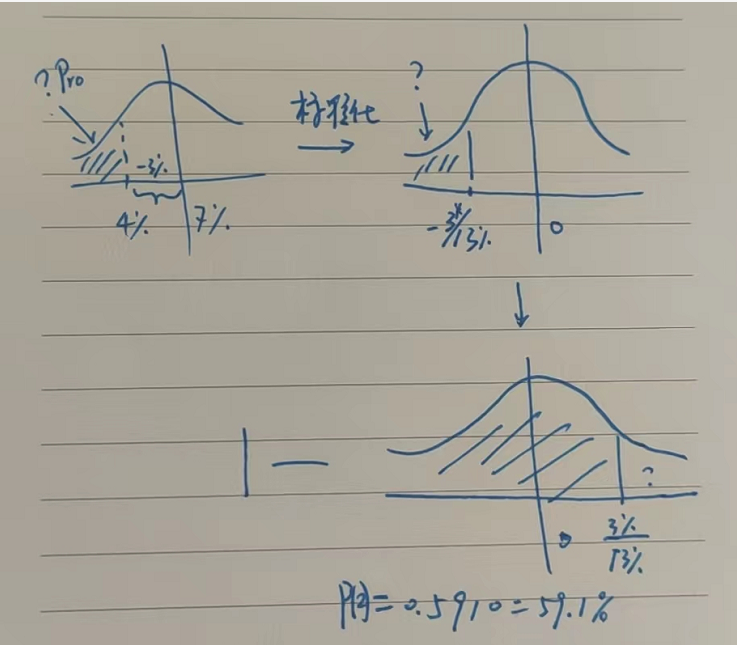 ? Pro
-3%
4%
7%
标准化
?
-3%/13%
0
1 —
?
0
3%/13%
P(z)=0.5910=59.1%